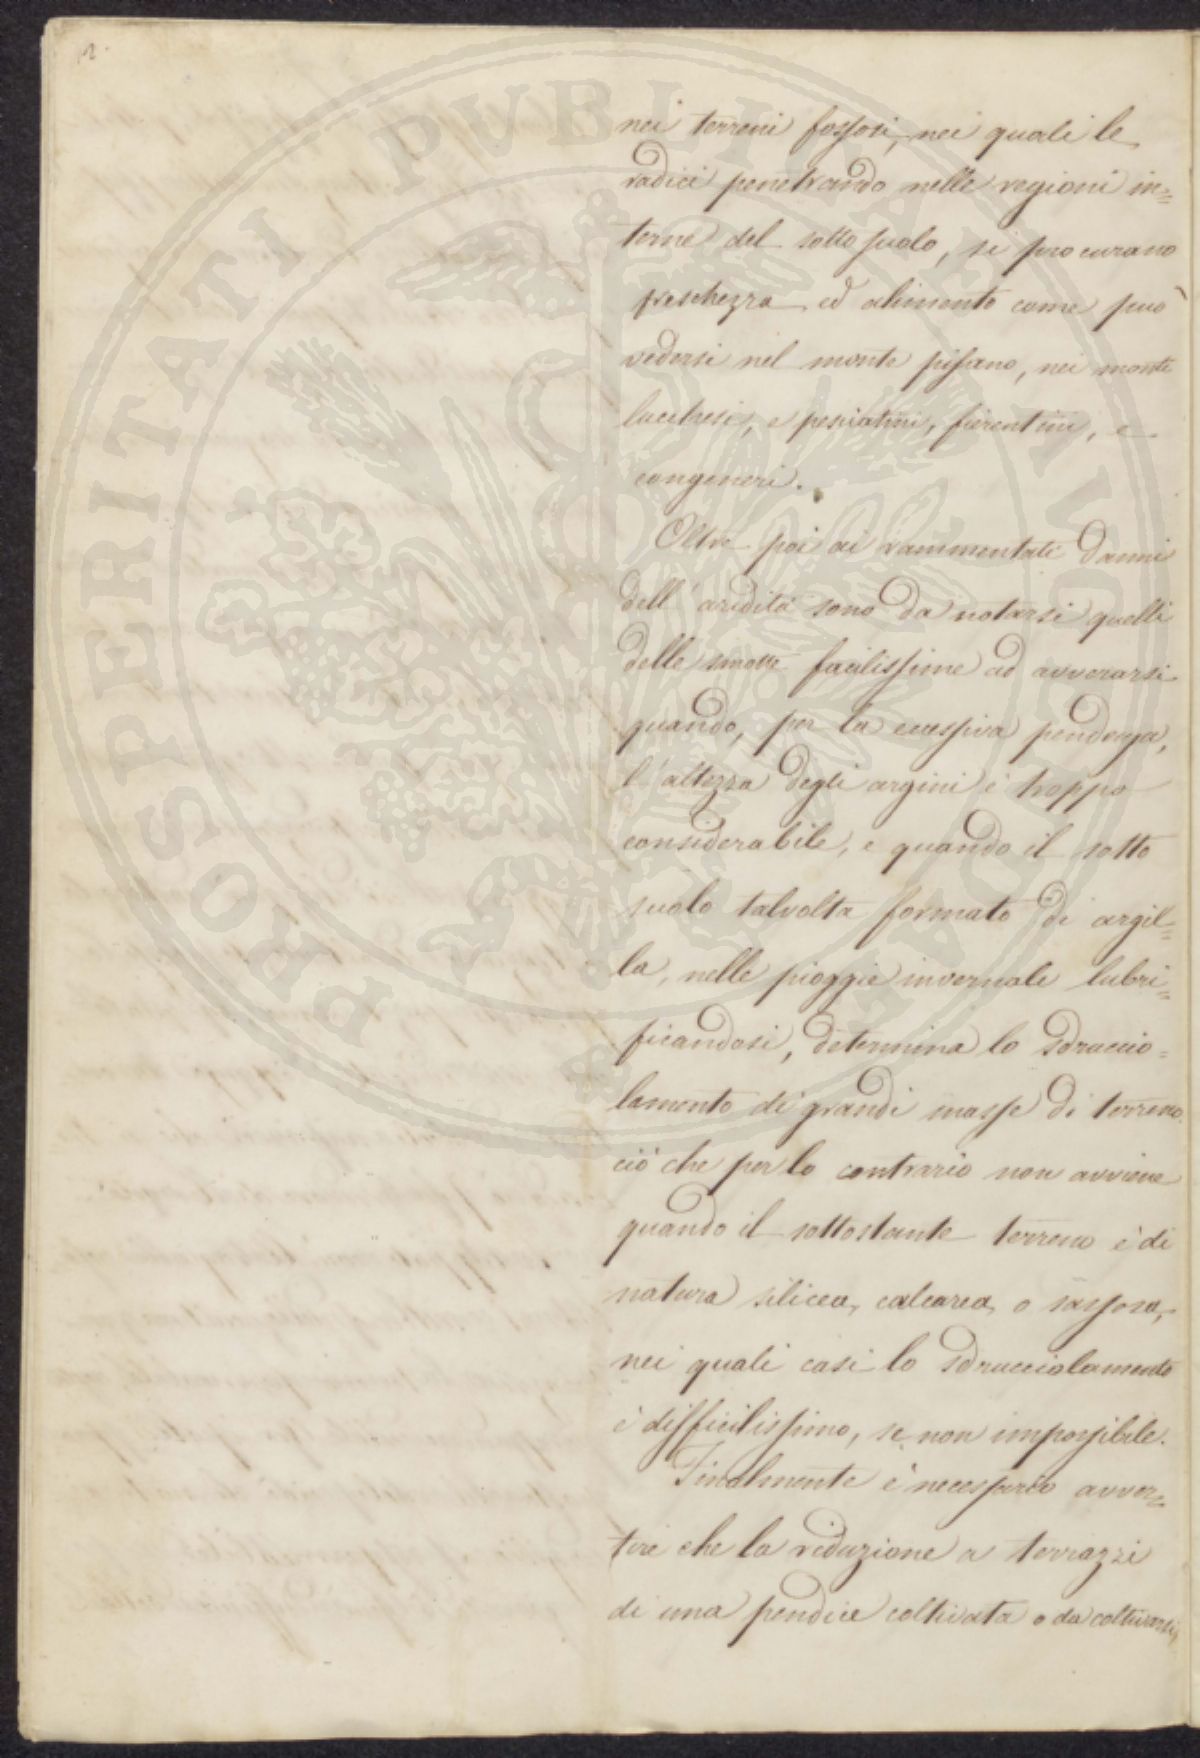 2.
nei terreni fossosi, nei quali le
radici penetrando nelle regioni in=
terne del sotto suolo, si procurano
freschezza ed alimento come può
vedersi nel monte pisano, nei monti
lucchesi, e pesciatini, fiorentini, e
congeneri.
Oltre poi ai rammentati danni
dell' aridità sono da notarsi quelli
delle smotte facilissime ad avverarsi
quando, per la eccessiva pendenza,
l' altezza degli argini è troppo
considerabile, e quando il sotto
suolo talvolta formato di argil=
la, nelle pioggie invernale lubri=
ficandosi, determina lo sdruccio=
lamento di grandi masse di terreno.
ciò che per lo contrario non avviene
quando il sottostante terreno è di
natura silicea, calcarea, o sassosa,
nei quali casi lo sdrucciolamento
è difficilissimo, se non impossibile.
Finalmente è necessario avver=
tire che la riduzione a terrazzi
di una pendice coltivata o da coltivarsi,
PROSPERITATI PUBLICAE AUGENDAE